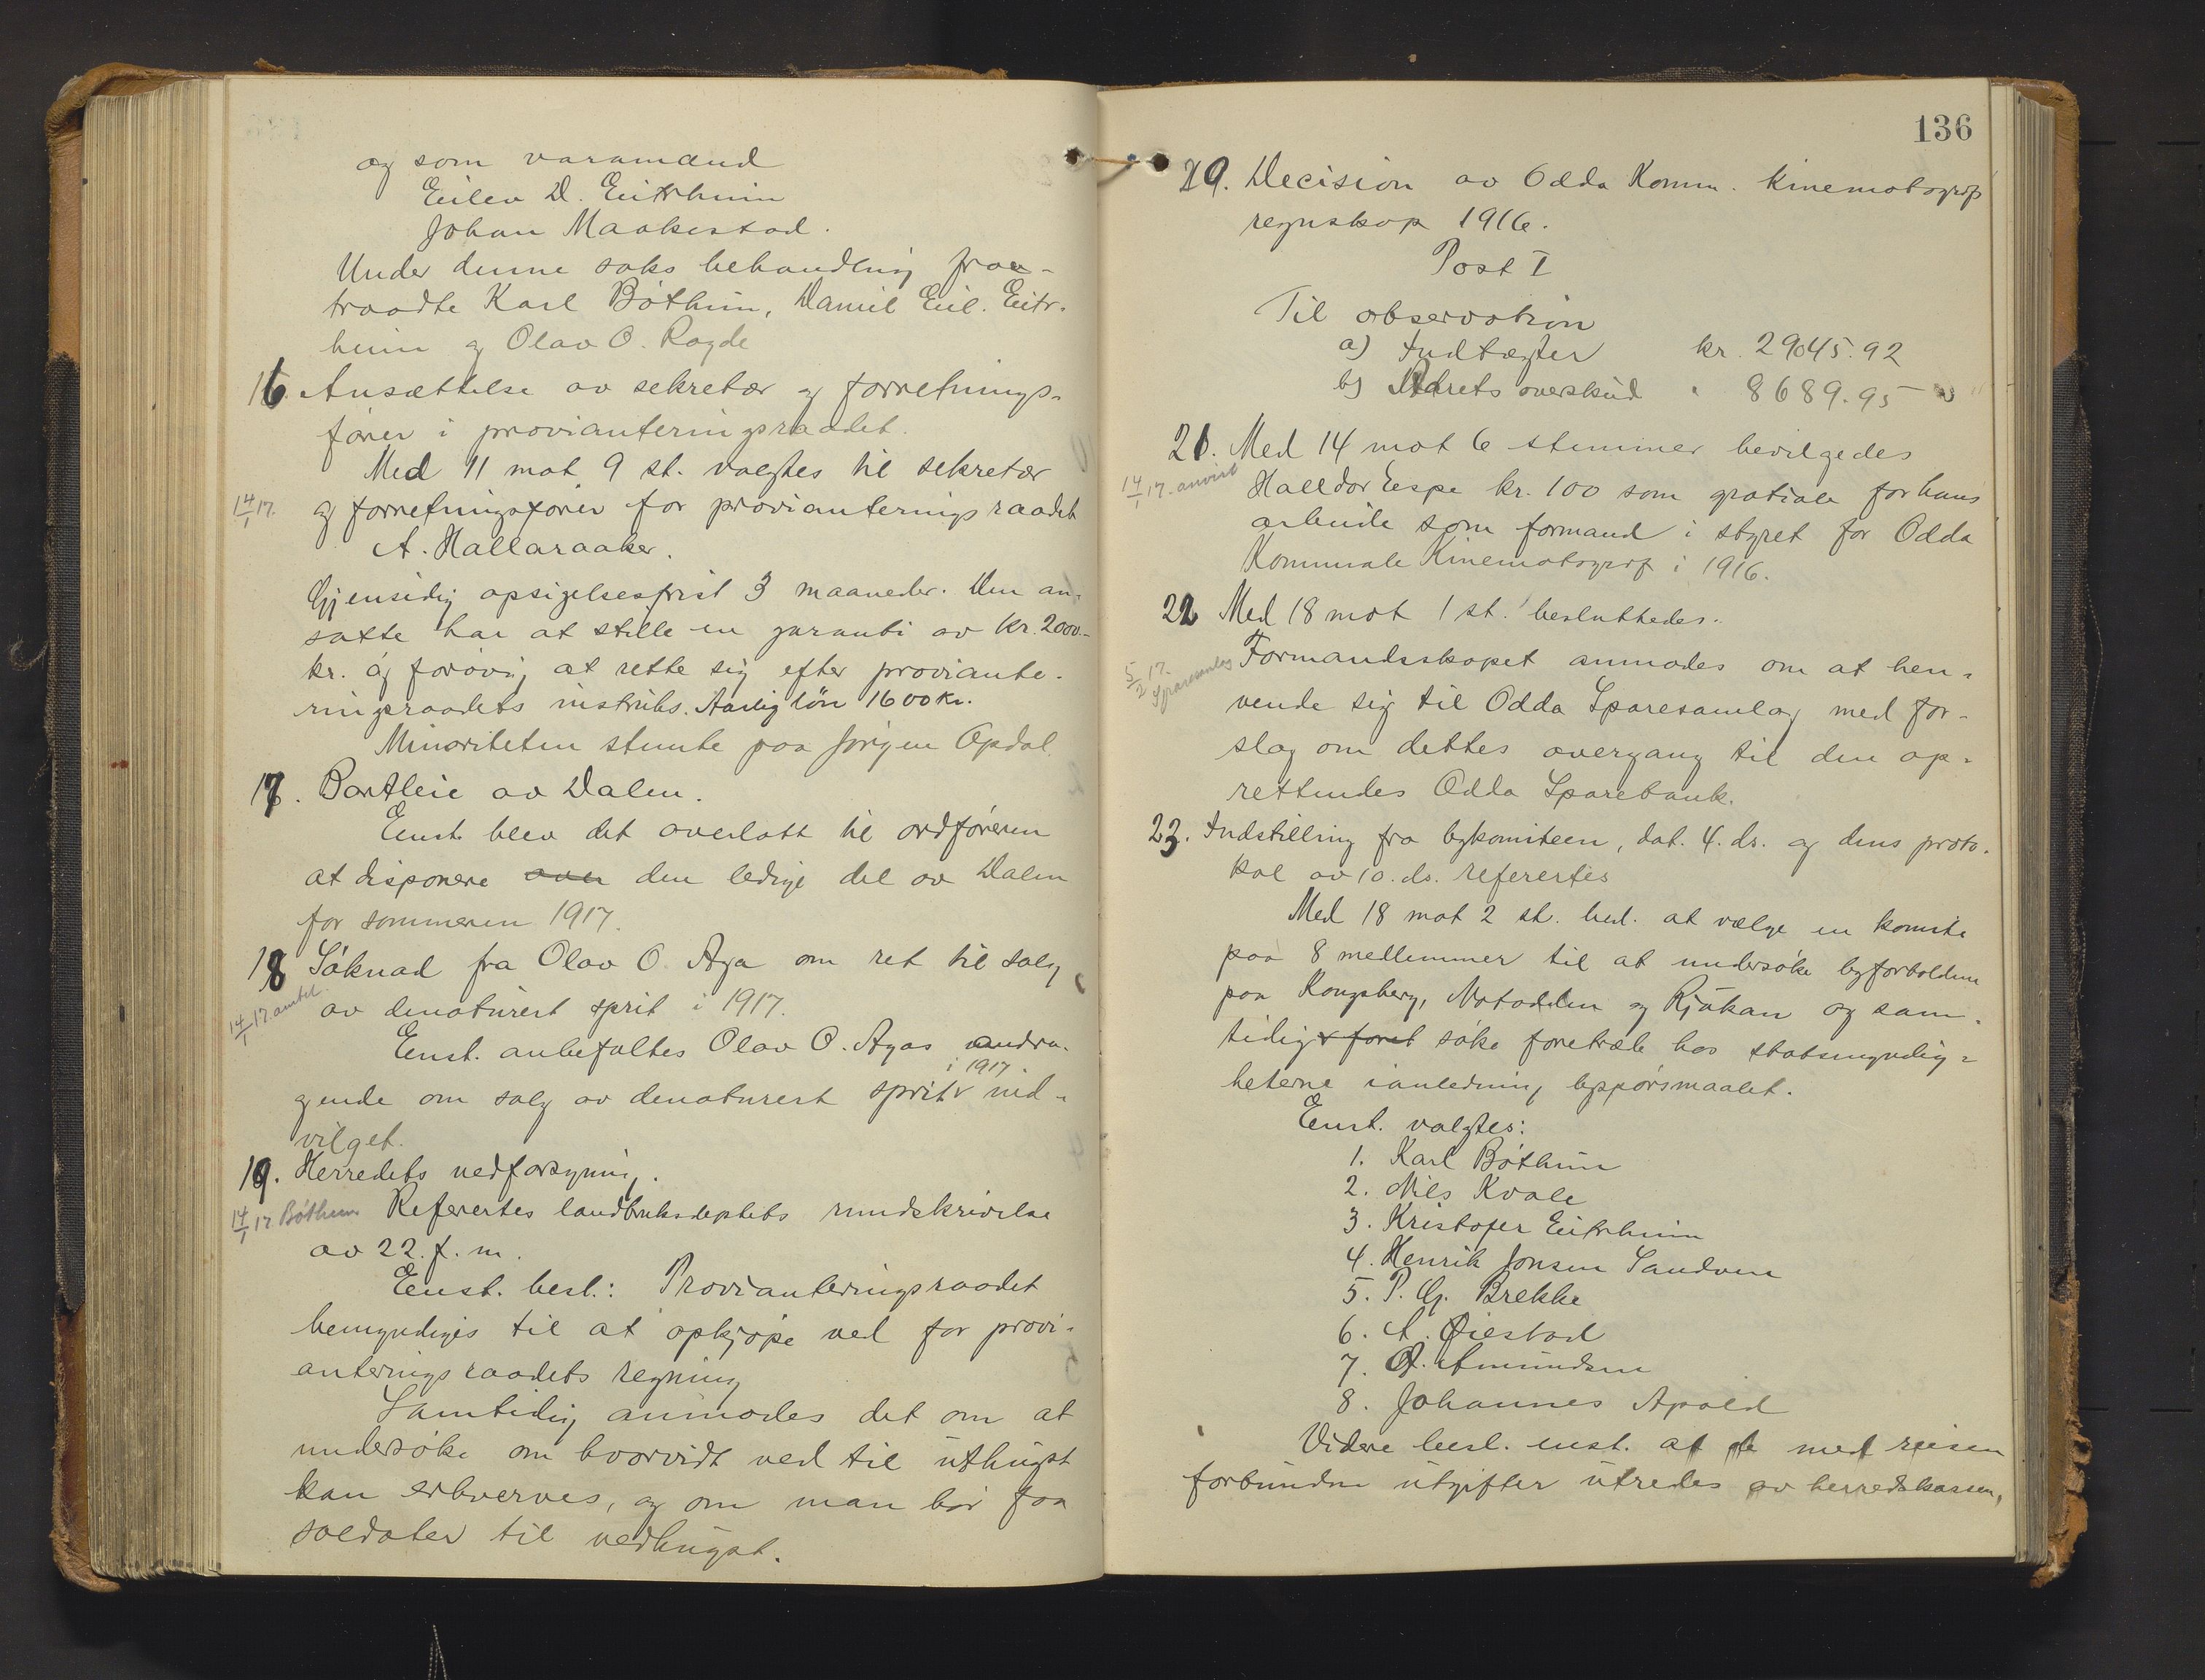 og som varamænd
Eilev D. Eitrheim
Johan Maakestad.
Under denne saks behandling fraa-
traadte Karl Bøthun, Daniel Eil. Eitr-
heim og Olav O. Ragde
16. Ansættelse av sekretær og forretnings-
fører i provianteringsraadet.
Med 11 mot 9 st. valgtes til sekretær
14/1 17. og forretningsfører for provianteringsraadet
A. Hallaraaker.
Gjensidig opsigelsesfrist 3 maaneder. Den an-
satte har at stille en garanti av kr. 2000.-
kr. og forøvrig at rette sig efter proviante-
ringsraadets instruks. Aarlig løn 1600 kr.
Minoriteten stemte paa Jørgen Opdal.
17. Bortleie av Dalen.
Enst. blev det overlatt til ordføreren
at disponere over den ledige del av Dalen
for sommeren 1917.
18 Søknad fra Olav O. Aga om ret til salg
14/1 17. amtet av denaturert sprit i 1917.
Enst. anbefaltes Olav O. Agas andra-
i 1917
gende om salg av denaturert sprit ind-
vilget.
19. Herredets vedforsyning.
14/1 17 Bøthun Referertes landbruksdeptets rundskrivelse
av 22. f. m.
Enst. besl.: Provianteringsraadet
bemyndiges til at opkjøpe ved for provi-
anteringsraadets regning
Samtidig anmodes det om at
undersøke om hvorvidt ved til uthugst
kan erhverves, og om man bør faa
soldater til vedhugst.
136
20. Decision av Odda Komm. kinematograf
regnskap 1916.
Post I
Til observation
a) Indtægter kr. 29045.92
b) Aarets overskud " 8689.95
21. Med 14 mot 6 stemmer bevilgedes
14/1 17. anvist Halldor Espe kr. 100 som gratiale for hans
arbeide som formand i styret for Odda
Kommunale Kinematograf i 1916.
22 Med 18 mot 1 st. besluttedes.
5/2 17. Sparesamlag Formandsskapet anmodes om at hen-
vende sig til Odda Sparesamlag med for-
slag om dettes overgang til den op-
rettendes Odda Sparebank.
23. Indstilling fra bykomiteen, dat. 4. ds. og dens proto-
kol av 10. ds. refertes
Med 18 mot 2 st. besl. at vælge en komite
paa 8 medlemmer til at undersøke byforholdene
paa Kongsberg, Notodden og Rjukan og sam-
tidig foret søke foretræde hos statsmyndig-
heterne i anledning byspørsmaalet.
Enst. valgtes:
1. Karl Bøthun
2. Nils Kvale
3. Kristofer Eitrheim
4. Henrik Jonsen Sandven
5. P. G. Brekke
6. A. Øiestad
7. O. Amundsen
8. Johannes Apold
Videre besl. enst. at de med reisen
forbundne utgifter utredes av herredskassen,